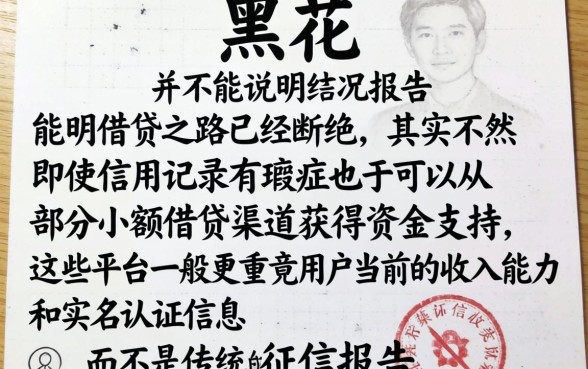 黑花
并不能说明结况报告
能明借贷之路已经断绝，其实不然
即使信用记录有瑕症也于可以从
部分小额借贷渠道获得资金支持，
这些平台一般更重竟用户当前的收入能力
和实名认证信息
而不是传统的征信报告